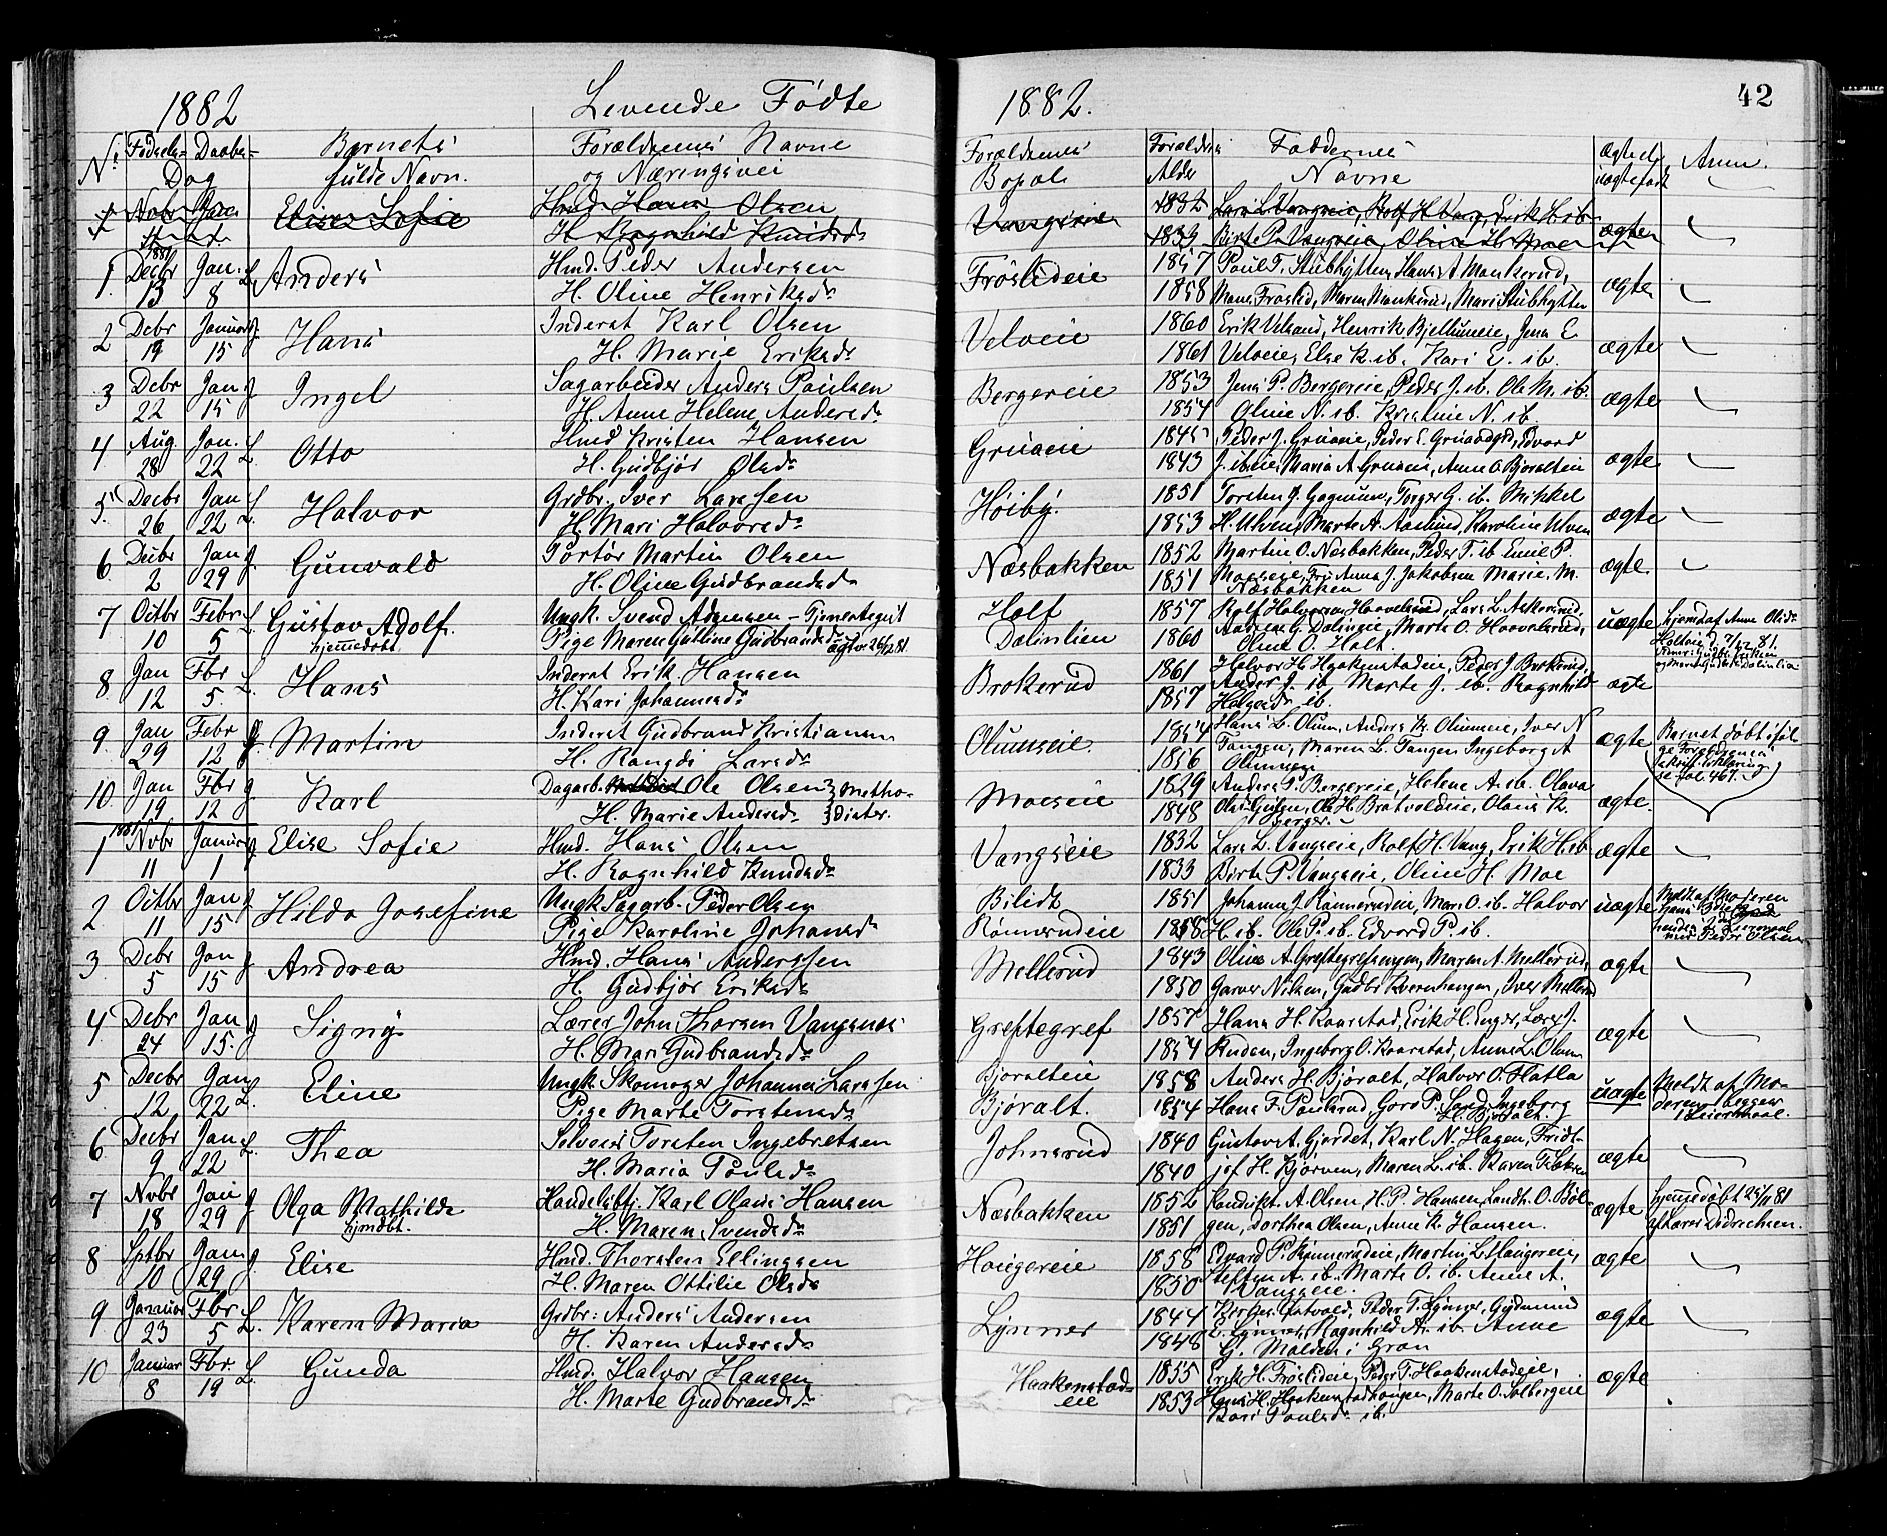 1882 Levende Fødte 1882. 42
No. Fødsels- Daabs- Barnets Forældrenes Navne Forældrenes Forældres Faddernes Ægte el. Anm.
Dag fulde Navn. og Næringsvei Bopæl Alder Navne uægtefødt
1 Novbr Jan Elise Sofie Hmd. Hans Olsen Vangseie 1832 Lars L. Vangseie, Rolf H. Vang, Erik H. ib
H. Ragnhild Knudsd. 1833 Birte P. Vangseie, Oline H. Moe ægte
1881
1 Decbr Jan. L. Anders Hmd. Peder Andersen Frøslideie 1857 Poul T. Stubhytten, Hans A. Mankerud,
13 8 H. Oline Henriksd. 1858 Hans Frøslid, Maren Mankerud, Mari Stubhytten ægte
2 Debr Januar J. Hans Inderst Karl Olsen Velveie 1860 Erik Velsand, Henrik Bjellumeie, Jens E.
19 15 H. Marie Eriksd. 1861 Velveie, Else K. ib. Kari E. ib. ægte
3 Debr Jan J Ingel Sagarbeider Anders Paulsen Bergereie 1853 Jens P. Bergereie, Peder J. ib. Ole M. ib.
22 15 H. Anne Helene Andersd. 1854 Oline N. ib. Kristine N. ib. ægte
4 Aug. Jan. L. Otto Hmd. Kristen Hansen Gruaeie 1845 Peder J. Gruaeie, Peder E. Edvard
28 22 H. Gudbjør Olsd. 1843 J. ibeie, Maria A. Gruaeie, Anne O. Bjøralteie ægte
5 Decbr Jan L. Halvor Grdbr. Iver Larssen Høiby 1851 Torsten J. Gagnum, Torger G. ib. Mikkel
26 22 H. Mari Halvorsd. 1853 H. Ulven, Marte A. Aaslund, Karoline Ulven ægte
6 Debr Jan J Gunvald Portør Martin Olsen Næsbakken 1852 Martin O. Næsbakken, Peder T. ib. Emil P.
2 29 H. Oline Gudbrandsd. 1851 Moeseie, Frø. Anna J. Jakobsen Marie. M. ægte.
Næsbakken
7 Octbr Febr. L. Gustav Adolf. Ungk. Svend Holt 1857 Rolf Halvorsen Haavelsrud, Lars L. Askersrud, uægte hjemd. af Anne Olsd.
10 5 hjemmedøbt. Pige Maren Gulline Gudbrandsd. Dælinlien 1860 Andreas G. Dælineie, Marte O. Haavelsrud,
Oline O. Holt.
8 Jan Fbr L. Hans Inderst Erik Hansen Brokerud 1861 Halvor H. Haakenstadeie, Peder J. Brokerud,
12 5. H. Kari Johannesd. 1857 Anders J. ib Marte J. ib. Ragnhild ægte
Halvorsd. ib.
9 Jan Febr J. Martin Inderst Gudbrand Kristiansen Olumseie. 1854 Hans L. Olum, Anders K. Olumseie, Iver N. ægte Barnet døbt iføl-
29 12 H. Rangdi Larsd. 1856 Tangen, Maren L. Tangen Ingeborg A ge Forældrenes
Olumseie skriftl. Erklæring
se fol. 467.
10 Jan Fbr J Karl Dagarb. Ole Olsen } Metho- Moeseie 1829 Anders P. Bergereie, Helene A. ib. Olava
19 12 H. Marie Andersd. } dister. 1848 Olsd. Gulen, Ole H. Bratvoldeie, Olaus K. ægte.
Berger.
1881
1 Nvbr Januar J. Elise Sofie Hmd. Hans Olsen Vangseie 1832 Lars L. Vangseie, Rolf H. Vang, Erik H. ib
11 1 H. Ragnhild Knudsd. 1833 Birte P. Vangseie, Oline H. Moe ægte
2 Octbr Jan J Hilda Josefine Ungk. Sagarb. Peder Olsen Bilidt 1851 Johannes J. Rønnerudeie, Mari O. ib. Halvor uægte Meldt af Moderen
11 15 Pige Karoline Johansd. Rønnerudeie 1858 H. ib. Ole P. ib. Edvard P. ib. hans 3die
hendes 1ste Leiermaal
med Peder Olsen
3 Debr Jan J Andrea Hmd. Hans Anderssen Mellerud 1843 Oline A. Greftegrefengen, Maren A. Mellerud,
5 15 H. Gudbjør Eriksd. 1850 Garver Nilsen, Gudbr. Kvernhaugen, Iver Mellerud ægte
4 Debr Jan J Signy Lærer John Thorsen Vangsnes Greftegref 1857 Hans H. Kaarstad, Erik H. Enger, Lars J.
24 15. H. Mari Gudbrandsd. 1854 Ruden, Ingeborg O. Kaarstad, Anne L. Olum ægte
5 Decbr Jan L. Eline Ungk. Skomager Johannes Larssen Bjøralteie 1858 Anders H. Bjøralt, Halvor O. Hatla uægte Meldt af Mo-
12 22 Pige Marte Torstensd. Bjøralt. 1854 Hans F. Paulsrud, Goro P. Sand, Ingeborg deren begges
H. Bjøralt. 1 Leiermaal.
6 Decbr Jan L. Thea Selveier Torsten Ingebretsen Johnsrud 1840 Gustav A. Gjerdet, Karl N. Hagen, Fridt-
9 22 H. Maria Poulsd. 1840 jof H. Kjørven, Maren L. ib. Karen ægte
7 Nvbr Jan J Olga Mathilde Handelsbtj. Karl Olaus Hansen Næsbakken 1852 Handlskt. A. Olsen, H. P. Hansen, Landh. O. Bøl- ægte hjemmedøbt 25/11 81
18 29 hjemdøbt. H. Maren Svendsd. 1851 gen, Dorthea Olsen, Anne K. Hansen. af Lærer Didrechsen.
8 Sptbr Jan J. Elise Hmd. Thorsten Ellingsen Haugereie 1858 Edvard P. Rønnerudeie, Martin L. Haugereie,
10 29 H. Maren Ottilie Olsd. 1850 Steffen A. ib. Marte O. ib. Anne A. ægte
Vangseie.
9 Januar Fbr L. Karen Maria Grdbr: Anders Andersen Lynner 1844 Kirkes. Østvold, Peder T. Lynner, Gudmund
23 5 H. Karen Andersd. 1848 E. Lynner, Ragnhild A. ib. Anne ægte
G. Molden i Gran
10 Januar Fbr. L. Gunda Hmd. Halvor Hansen Haakenstad- 1855 Erik H. Frøslideie, Peder T. Haakenstadeie,
8 19 H. Marte Gudbrandsd. eie 1853 Hans H. Haakenstadhaugen, Marte O. Solbergeie ægte
Kari Poulsd. ib.